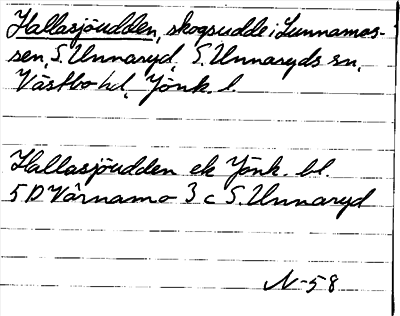 Hallasjöudden, skogsudde i Lunnamos-
sen, S. Unnaryd, S. Unnaryds sn,
Västbo hd, Jönk. l.
Hallasjöudden ek Jönk. bl.
5 D Värnamo 3 c S. Unnaryd
N-58